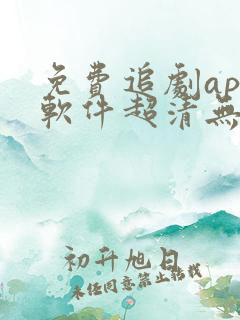 免費追劇ap
軟件超清無
初升旭日
未经同意禁止转载